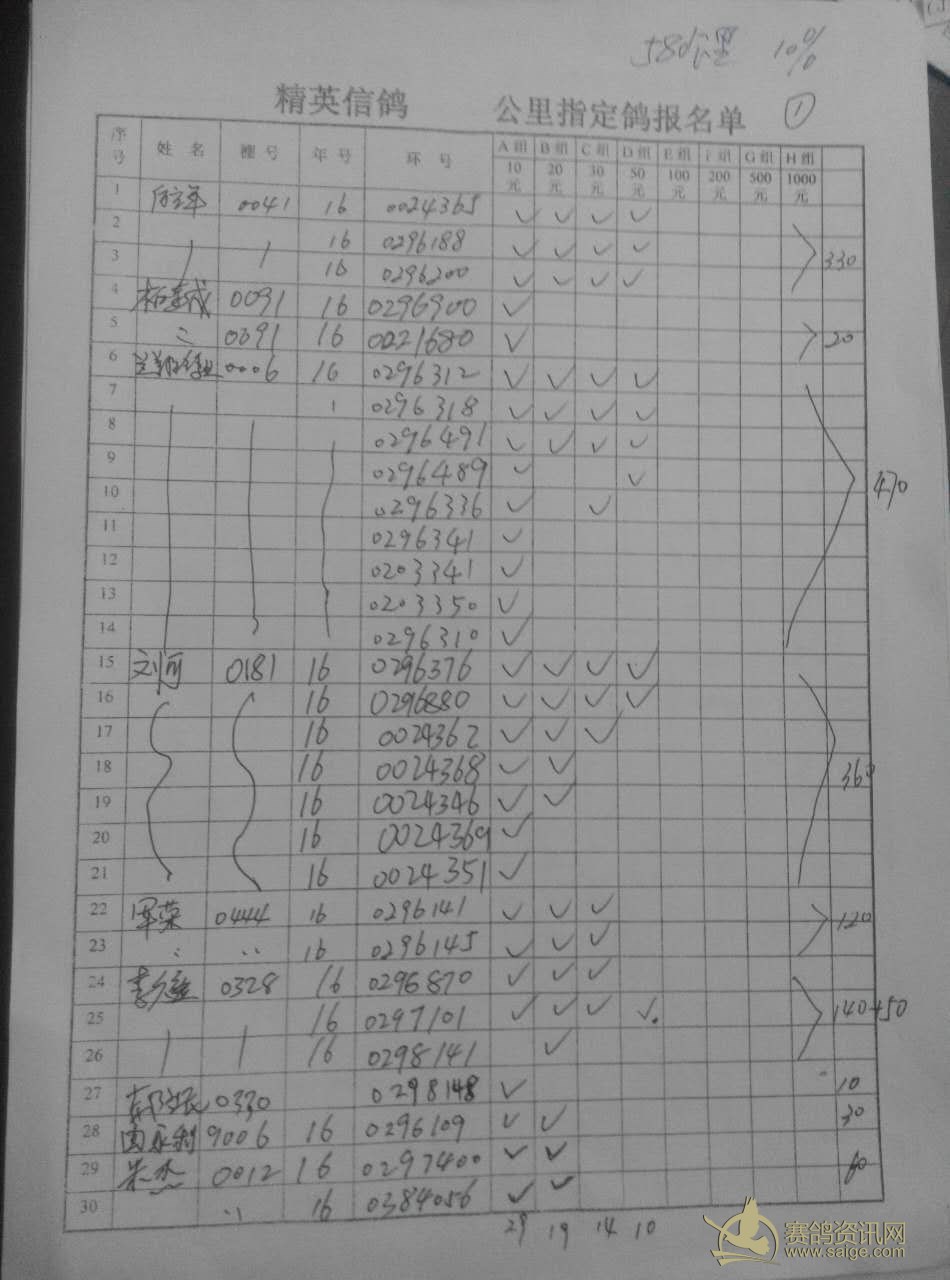 580公里 10%
精英信鸽 公里指定鸽报名单 ①
序号 姓名 棚号 年号 环号 A组 B组 C组 D组 E组 F组 G组 H组
10元 20元 30元 50元 100元 200元 500元 1000元
1 0041 16 0024365 ✓ ✓ ✓ ✓
2 16 0296188 ✓ ✓ ✓ ✓
3 16 0296200 ✓ ✓ ✓ ✓ 330
4 0091 16 0296900 ✓
5 0391 16 0021680 ✓ 20
6 0006 16 0296312 ✓ ✓ ✓ ✓
7 0296318 ✓ ✓ ✓ ✓
8 0296491 ✓ ✓ ✓ ✓
9 0296489 ✓ ✓
10 0296336 ✓ ✓ 470
11 0296341 ✓
12 0203341 ✓
13 0203350 ✓
14 0296310 ✓
15 刘河 0181 16 0296376 ✓ ✓ ✓ ✓
16 16 0296880 ✓ ✓ ✓ ✓
17 16 0024362 ✓ ✓ ✓
18 16 0024368 ✓ ✓ 360
19 16 0024346 ✓ ✓
20 16 0024369 ✓
21 16 0024351 ✓
22 0444 16 0296141 ✓ ✓ ✓ 120
23 16 0296145 ✓ ✓ ✓
24 0328 16 0296870 ✓ ✓ ✓
25 16 0297101 ✓ ✓ ✓ ✓ 140+50
26 16 0298141 ✓
27 0330 0298148 ✓ 10
28 9006 16 0296109 ✓ ✓ 30
29 朱杰 0012 16 0297400 ✓ ✓ 60
30 16 0384056 ✓ ✓
29 19 14 10
赛鸽资讯网
www.saige.com